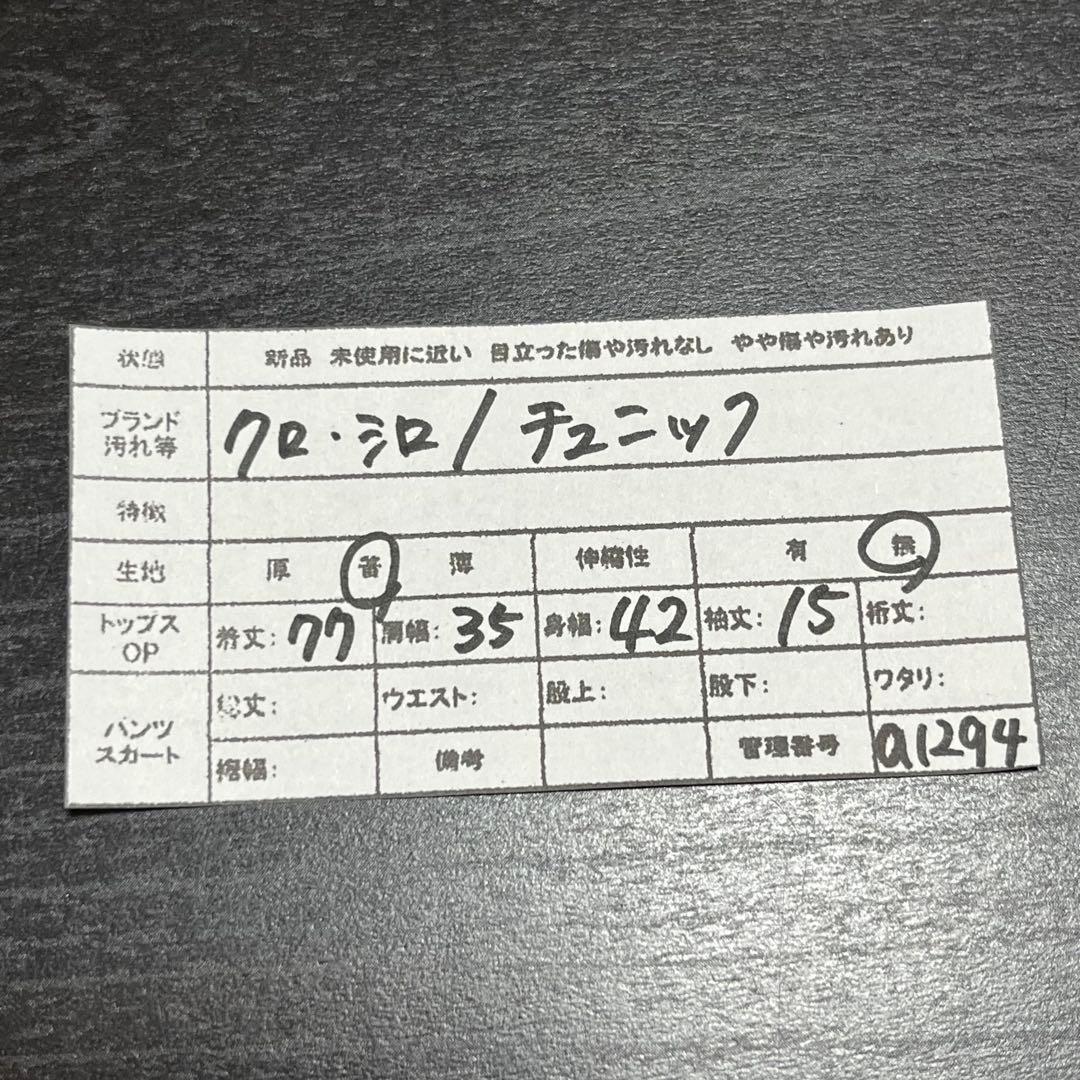 状態 新品 未使用に近い 目立った傷や汚れなし やや傷や汚れあり
ブランド
汚れ等
クロ・シロ/チュニック
特徴
生地 厚 普 薄 伸縮性 有 無
トップス
OP
着丈:77 肩幅:35 身幅:42 袖丈:15 裄丈:
パンツ
スカート
総丈: ウエスト: 股上: 股下: ワタリ:
裾幅: 備考 管理番号 a1294